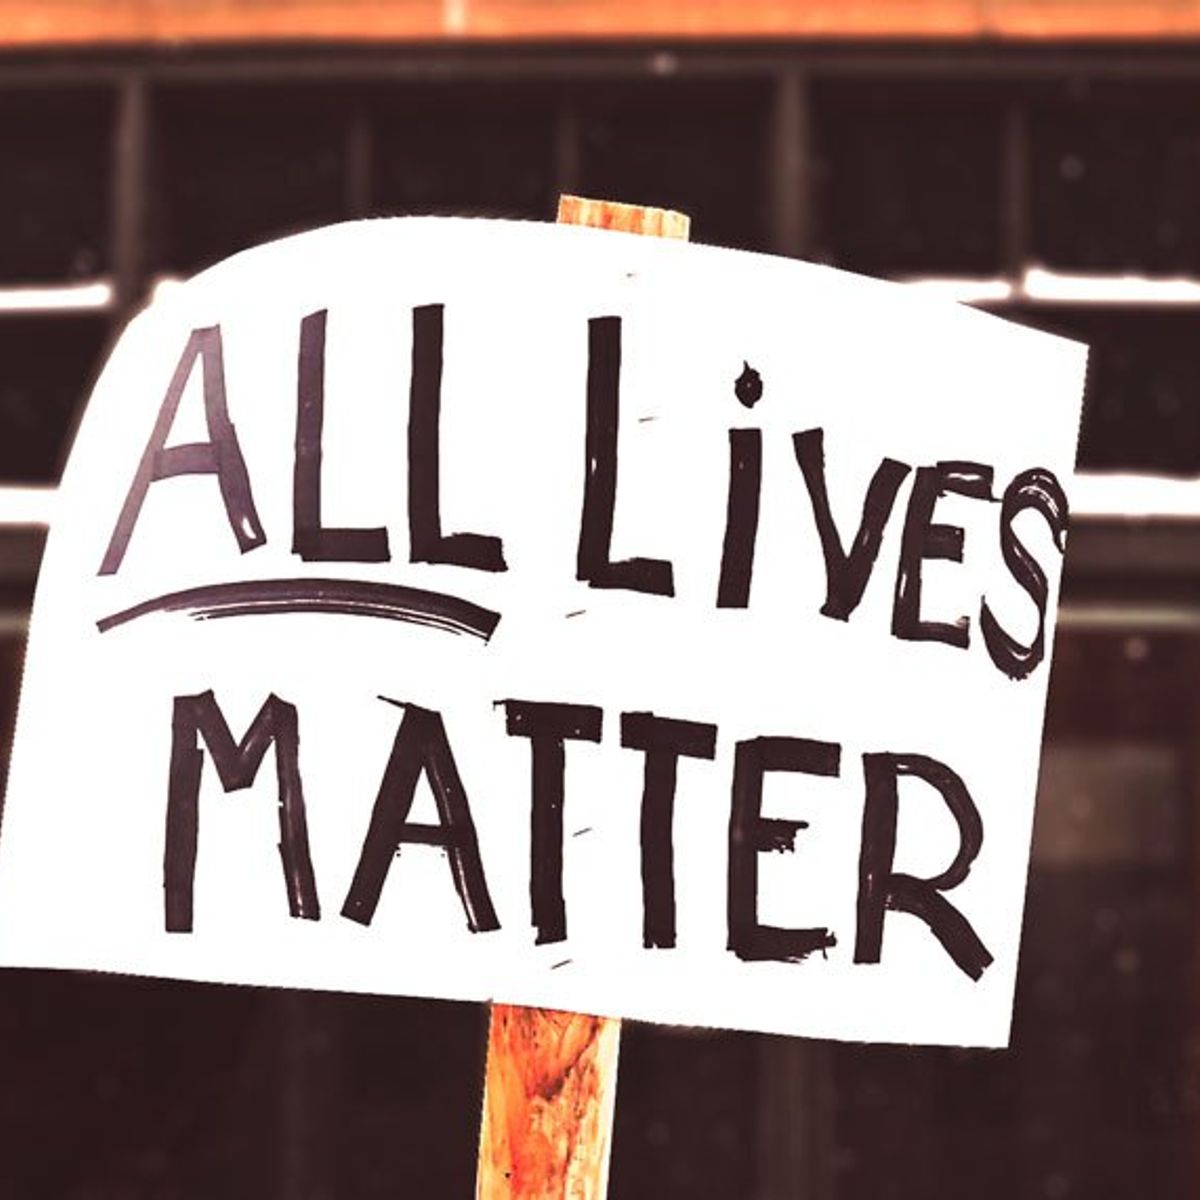 ALL LiVES
MATTER